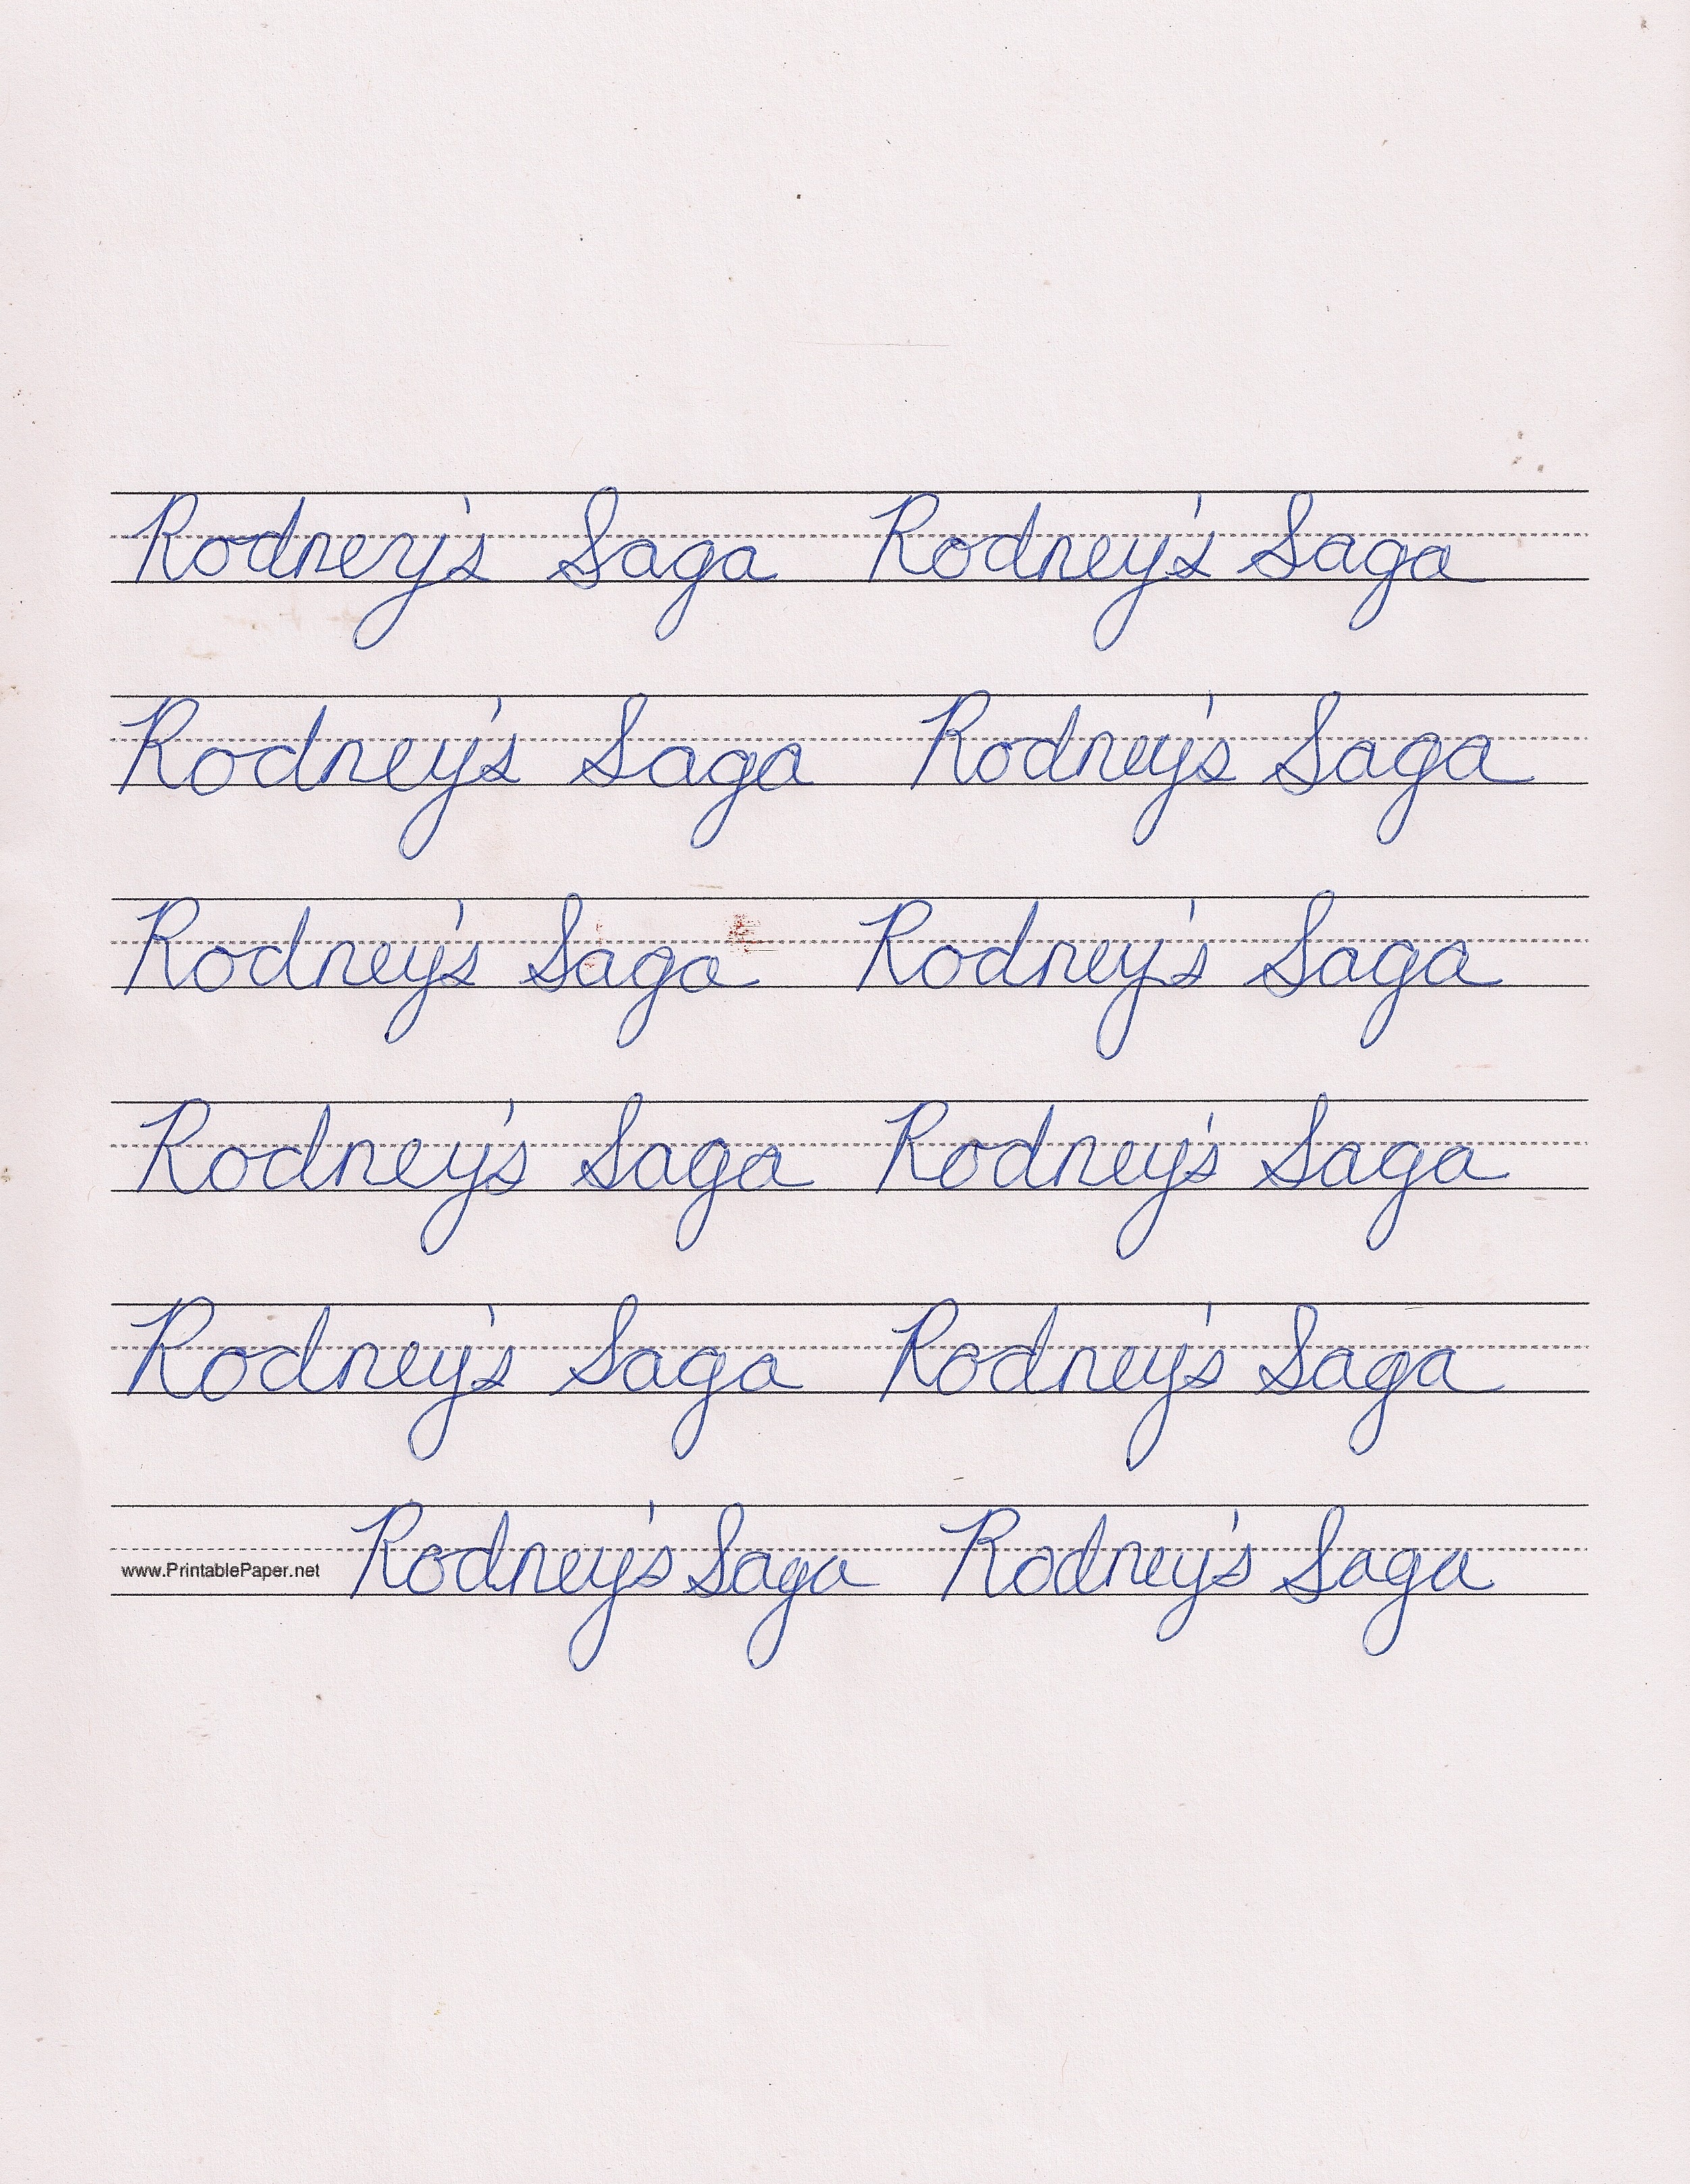 Rodney's Saga Rodney's Saga
Rodney's Saga Rodney's Saga
Rodney's Saga Rodney's Saga
Rodney's Saga Rodney's Saga
Rodney's Saga Rodney's Saga
www.PrintablePaper.net Rodney's Saga Rodney's Saga